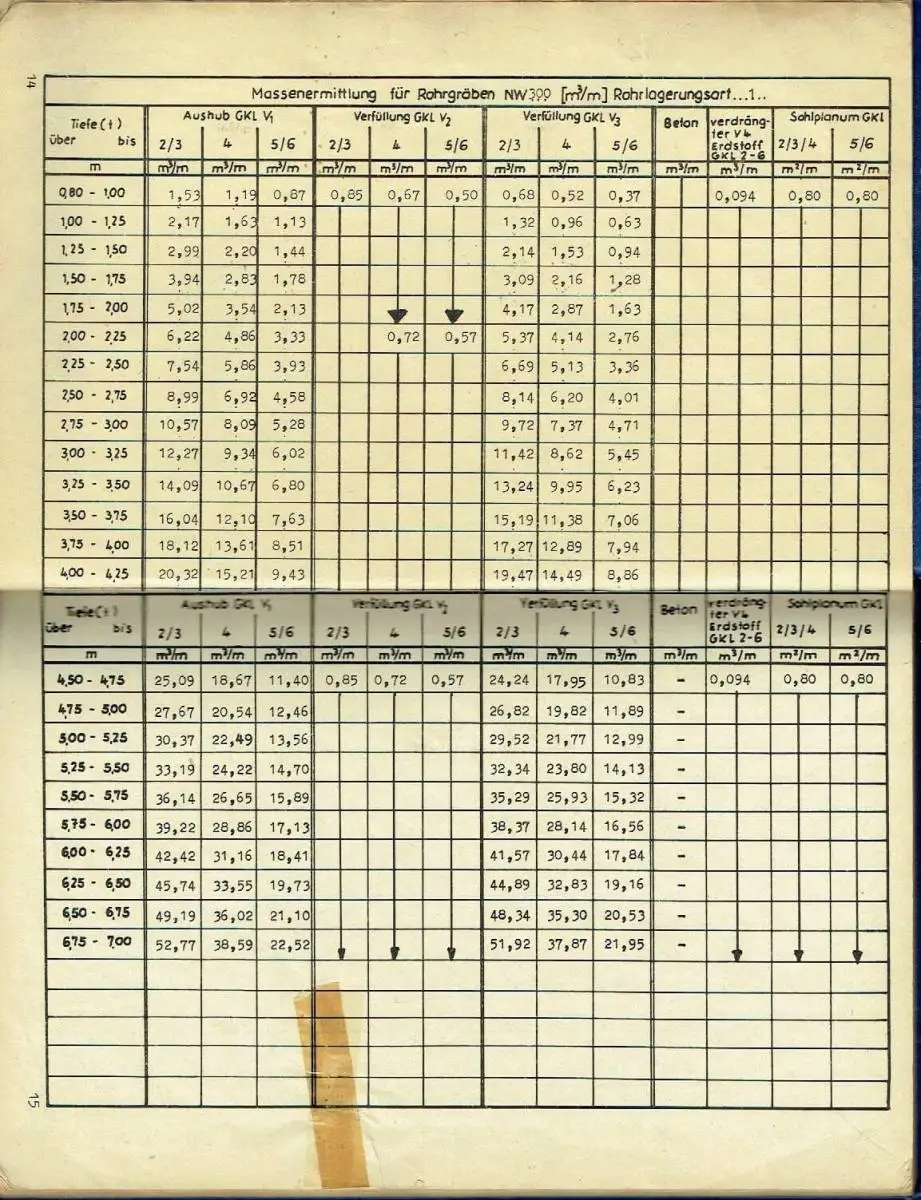 14
Massenermittlung für Rohrgräben NW300 [m³/m] Rohrlagerungsart...1..
Tiefe (t) Aushub GKL V₁ Verfüllung GKL V₂ Verfüllung GKL V₃ Beton verdräng- Sohlplanum GKL
über bis 2/3 4 5/6 2/3 4 5/6 2/3 4 5/6 ter V4 2/3/4 5/6
Erdstoff
GKL 2-6
m m³/m m³/m m³/m m³/m m³/m m³/m m³/m m³/m m³/m m³/m m³/m m²/m m²/m
0,80 - 1,00 1,53 1,19 0,87 0,85 0,67 0,50 0,68 0,52 0,37 0,094 0,80 0,80
1,00 - 1,25 2,17 1,63 1,13 1,32 0,96 0,63
1,25 - 1,50 2,99 2,20 1,44 2,14 1,53 0,94
1,50 - 1,75 3,94 2,83 1,78 3,09 2,16 1,28
1,75 - 2,00 5,02 3,54 2,13 4,17 2,87 1,63
2,00 - 2,25 6,22 4,86 3,33 0,72 0,57 5,37 4,14 2,76
2,25 - 2,50 7,54 5,86 3,93 6,69 5,13 3,36
2,50 - 2,75 8,99 6,92 4,58 8,14 6,20 4,01
2,75 - 3,00 10,57 8,09 5,28 9,72 7,37 4,71
3,00 - 3,25 12,27 9,34 6,02 11,42 8,62 5,45
3,25 - 3,50 14,09 10,67 6,80 13,24 9,95 6,23
3,50 - 3,75 16,04 12,10 7,63 15,19 11,38 7,06
3,75 - 4,00 18,12 13,61 8,51 17,27 12,89 7,94
4,00 - 4,25 20,32 15,21 9,43 19,47 14,49 8,86
Tiefe (t) Aushub GKL V₁ Verfüllung GKL V₂ Verfüllung GKL V₃ Beton verdräng- Sohlplanum GKL
über bis 2/3 4 5/6 2/3 4 5/6 2/3 4 5/6 ter V4 2/3/4 5/6
Erdstoff
GKL 2-6
m m³/m m³/m m³/m m³/m m³/m m³/m m³/m m³/m m³/m m³/m m³/m m²/m m²/m
4,50 - 4,75 25,09 18,67 11,40 0,85 0,72 0,57 24,24 17,95 10,83 - 0,094 0,80 0,80
4,75 - 5,00 27,67 20,54 12,46 26,82 19,82 11,89 -
5,00 - 5,25 30,37 22,49 13,56 29,52 21,77 12,99 -
5,25 - 5,50 33,19 24,22 14,70 32,34 23,80 14,13 -
5,50 - 5,75 36,14 26,65 15,89 35,29 25,93 15,32 -
5,75 - 6,00 39,22 28,86 17,13 38,37 28,14 16,56 -
6,00 - 6,25 42,42 31,16 18,41 41,57 30,44 17,84 -
6,25 - 6,50 45,74 33,55 19,73 44,89 32,83 19,16 -
6,50 - 6,75 49,19 36,02 21,10 48,34 35,30 20,53 -
6,75 - 7,00 52,77 38,59 22,52 51,92 37,87 21,95 -
15